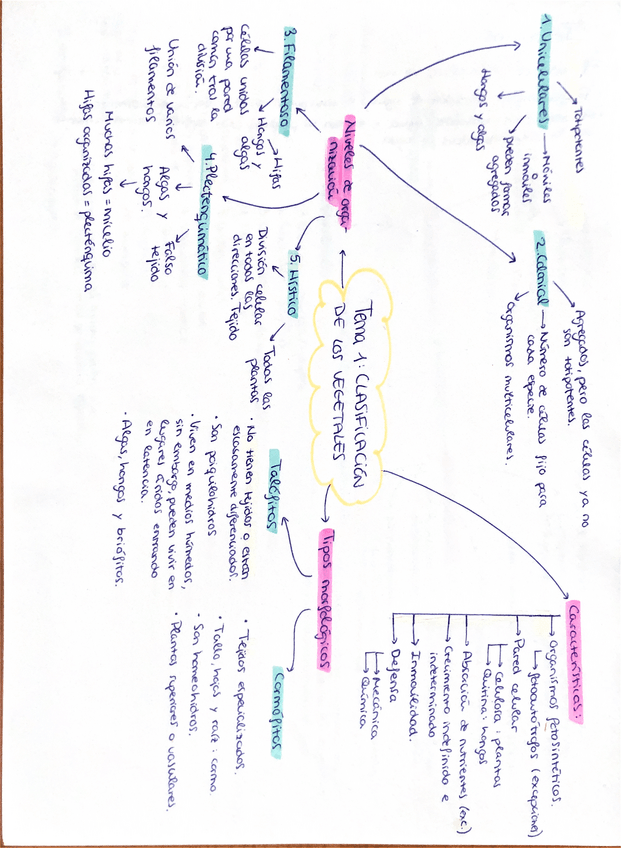 Tema 1: CLASIFICACIÓN
DE LOS VEGETALES
Niveles de orga-
nización
1. Unicelulares
Totipotentes
Móviles
o
inmóviles
pueden formar
agregados
Hongos y algas
2. Colonial
Agregados, pero las células ya no
son totipotentes.
Número de células fijo para
cada especie.
Organismos multicelulares.
3. Filamentoso
Células unidas
por una pared
común tras la
división.
Hongos y
algas
Hifas
4. Plectenquimático
Unión de varios
filamentos
Algas y
hongos.
Falso
tejido
Muchas hifas = micelio
Hifas organizadas = plecténquima
5. Hístico
División celular
en todas las
direcciones. Tejido
Todas las
plantas
Características:
Organismos fotosintéticos.
fotoautótrofos (excepciones)
Pared celular
Celulosa: plantas
Quitina: hongos
Absorción de nutrientes (exc.)
Crecimiento indefinido e
indeterminado
Inmovilidad.
Defensa
Mecánica
Química
Tipos morfológicos
Talófitos
· No tienen tejidos o están
escasamente diferenciados.
· Son poiquilohidros
· Viven en medios húmedos,
sin embargo, pueden vivir en
lugares áridos entrando
en latencia.
· Algas, hongos y briófitos.
Cormófitos
· Tejidos especializados.
· Tallo, hojas y raíz: cormo.
· Son homeohidros.
· Plantas superiores o vasculares.